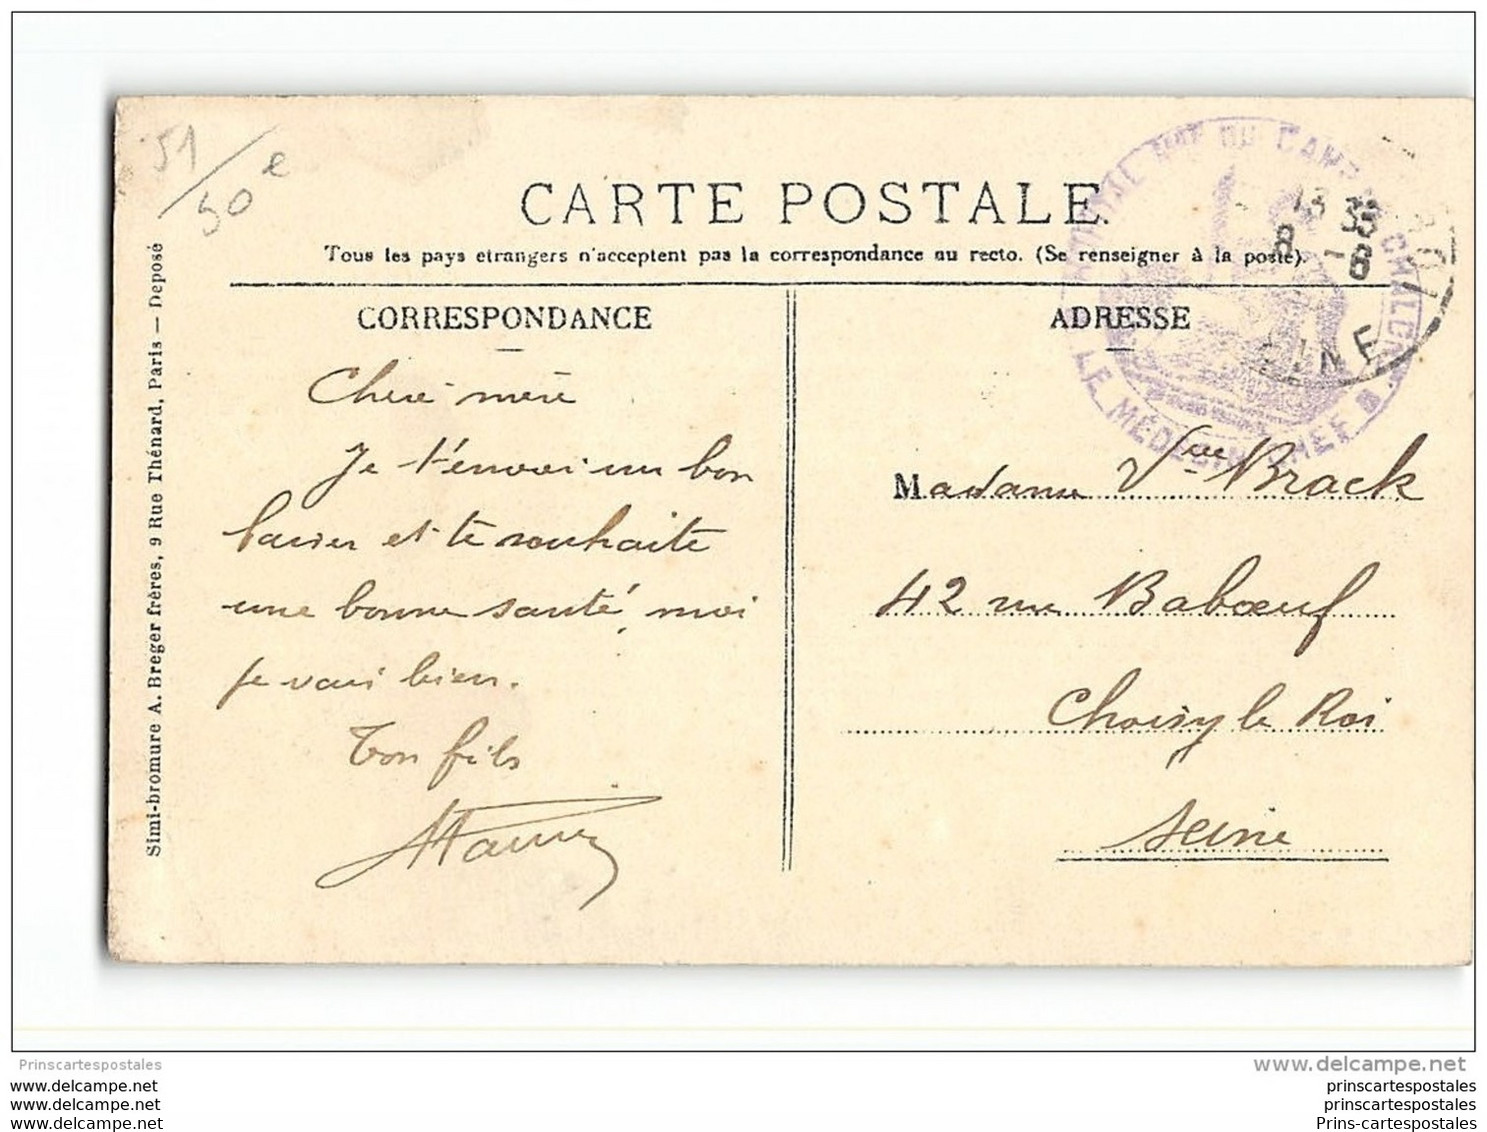 51/50e
CARTE POSTALE
Tous les pays etrangers n'acceptent pas la correspondance au recto. (Se renseigner à la poste).
CORRESPONDANCE
Chère mère
Je t'envoi un bon
baiser et te souhaite
une bonne santé, moi
je vais bien.
Ton fils
ADRESSE
Madame Vve Brack
42 rue Babœuf
Choisy le Roi
Seine
Simi-bromure A. Breger frères, 9 Rue Thénard, Paris — Deposé
DU CAMP
LE MÉDECIN CHEF
13 35
8 -8
Prinscartespostales
www.delcampe.net
www.delcampe.net
www.delcampe.net
www.delcampe.net
prinscartespostales
prinscartespostales
Prins-cartespostales